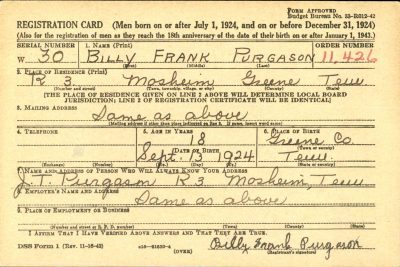 FORM APPROVED
Budget Bureau No. 33-R012-42
REGISTRATION CARD (Men born on or after July 1, 1924, and on or before December 31, 1924)
(Also for the registration of men as they reach the 18th anniversary of the date of their birth on or after January 1, 1943.)
SERIAL NUMBER 1. NAME (Print) ORDER NUMBER
W 30 BILLY FRANK PURGASON 11,426
(First) (Middle) (Last)
2. PLACE OF RESIDENCE (Print)
R 3 Mosheim Greene Tenn
(Number and street) (Town, township, village, or city) (County) (State)
[THE PLACE OF RESIDENCE GIVEN ON LINE 2 ABOVE WILL DETERMINE LOCAL BOARD
JURISDICTION; LINE 2 OF REGISTRATION CERTIFICATE WILL BE IDENTICAL]
3. MAILING ADDRESS
Same as above
4. TELEPHONE 5. AGE IN YEARS 6. PLACE OF BIRTH
18 Greene Co.
DATE OF BIRTH (Town or county)
Sept. 13 1924 Tenn.
(Exchange) (Number) (Mo.) (Day) (Yr.) (State or country)
7. NAME AND ADDRESS OF PERSON WHO WILL ALWAYS KNOW YOUR ADDRESS
J. T. Purgason R 3 Mosheim, Tenn
8. EMPLOYER'S NAME AND ADDRESS
Same as above
9. PLACE OF EMPLOYMENT OR BUSINESS
(Number and street or R. F. D. number) (Town) (County) (State)
I AFFIRM THAT I HAVE VERIFIED ABOVE ANSWERS AND THAT THEY ARE TRUE.
DSS Form 1 (Rev. 11-16-42) (OVER) Billy Frank Purgason
(Registrant's signature)